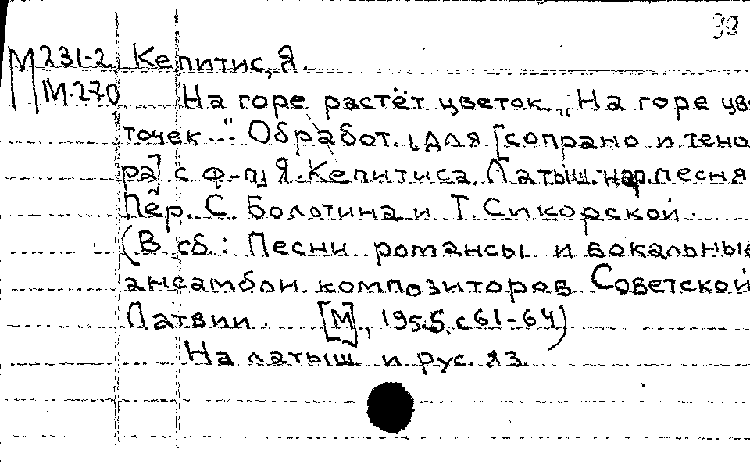 99
М 231-2 Кепитис, Я.
М-270 На горе растёт цветок. „На горе цве
точек..." Обработ. для [сопрано и тено
ра] с ф-п Я. Кепитиса. Латыш. нар. песня
Пер. С. Болотина и Т. Сикорской.
(В сб: Песни романсы и вокальные
ансамбли композиторов Советской
Латвии. [М], 1955, с 61-64)
На латыш и рус. яз.